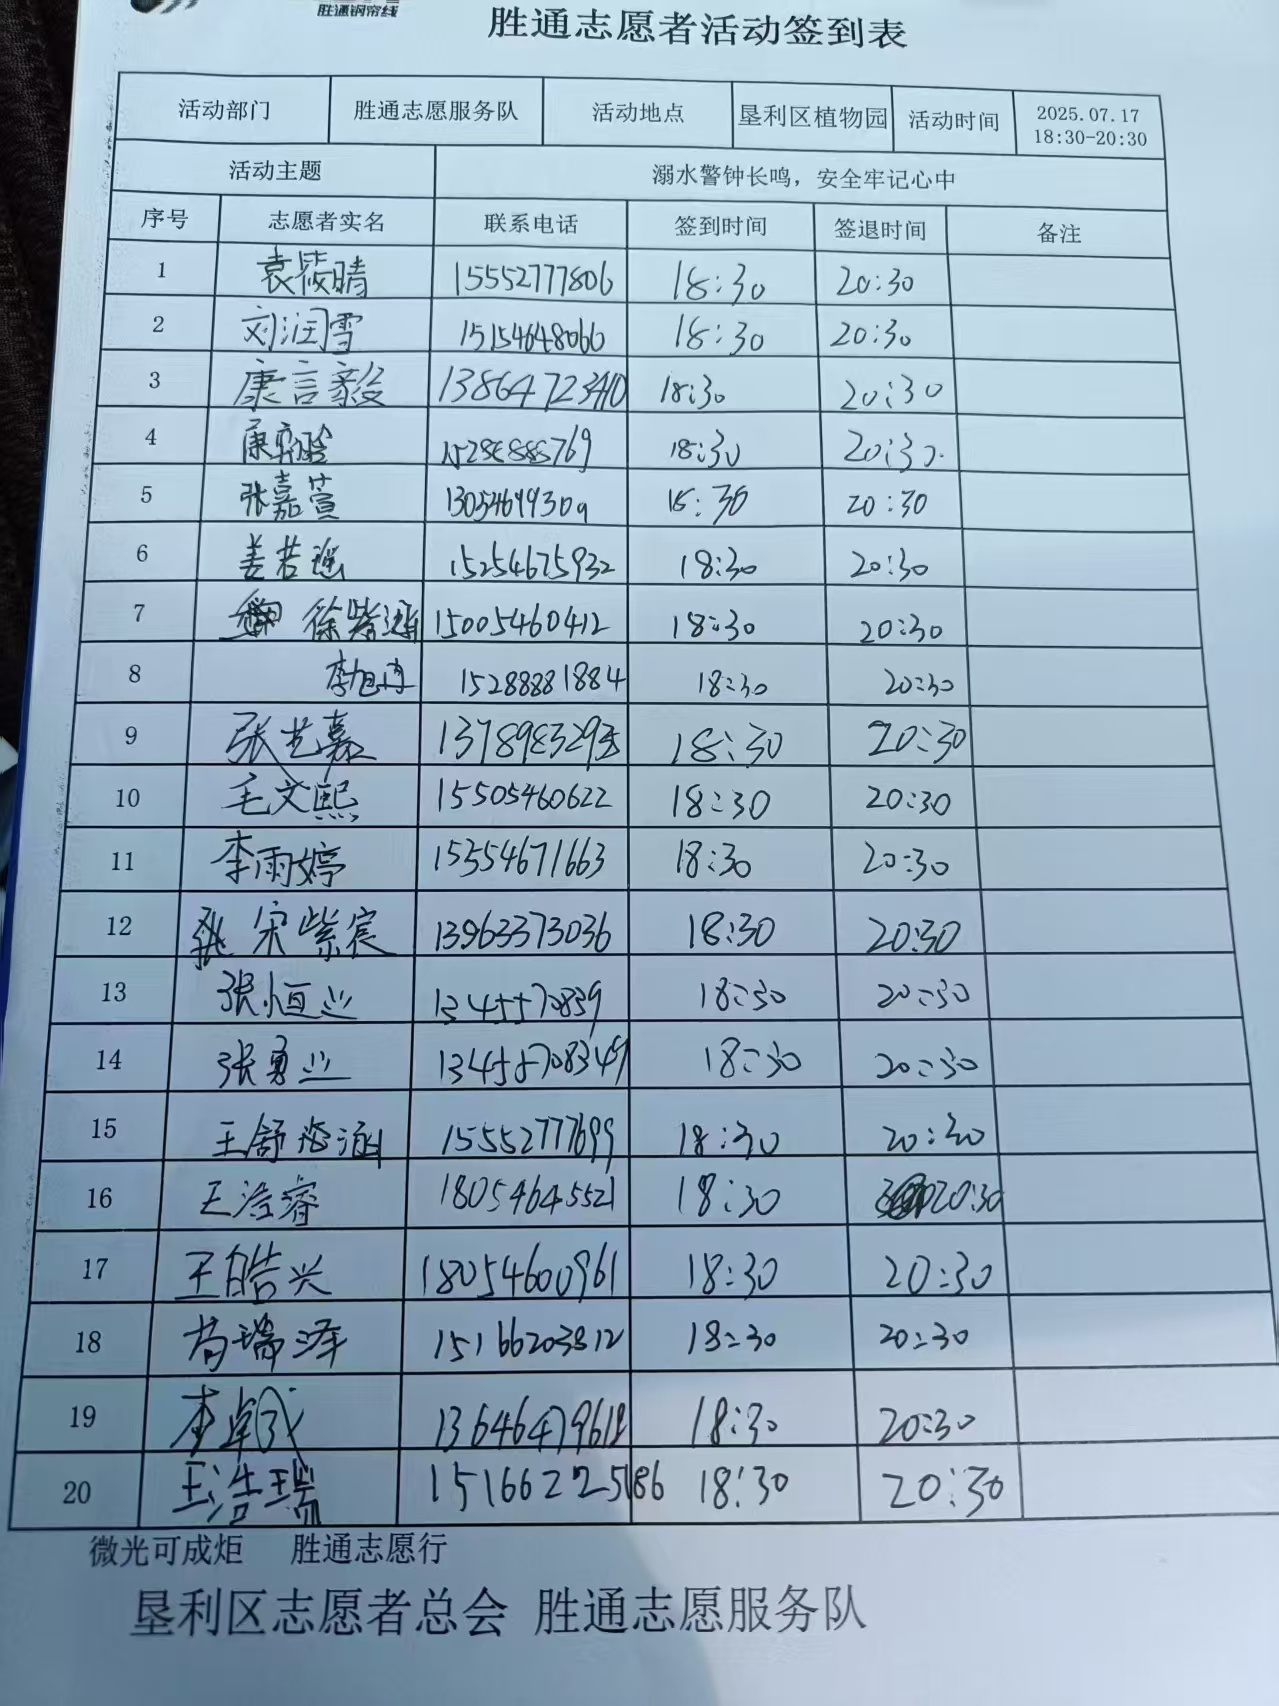 胜通钢帘线
胜通志愿者活动签到表
活动部门 胜通志愿服务队 活动地点 垦利区植物园 活动时间 2025.07.17 18:30-20:30
活动主题 溺水警钟长鸣，安全牢记心中
序号 志愿者实名 联系电话 签到时间 签退时间 备注
1 袁筱晴 15552777806 18:30 20:30
2 刘润雪 15154648066 18:30 20:30
3 康言毅 13864723410 18:30 20:30
4 康 18:30 20:30
5 张嘉萱 18:30 20:30
6 姜若瑶 15254675932 18:30 20:30
7 徐紫涵 15005460412 18:30 20:30
8 李旭冉 15288881884 18:30 20:30
9 张艺嘉 18:30 20:30
10 毛文熙 15505460622 18:30 20:30
11 李雨婷 15354671663 18:30 20:30
12 宋紫宸 13963373036 18:30 20:30
13 张恒 18:30 20:30
14 张勇 18:30 20:30
15 王舒涵 15552777699 18:30 20:30
16 王浩睿 18054645521 18:30 20:30
17 王皓兴 18054600961 18:30 20:30
18 苟瑞泽 15166203812 18:30 20:30
19 李卓 18:30 20:30
20 王浩瑞 15166225186 18:30 20:30
微光可成炬 胜通志愿行
垦利区志愿者总会 胜通志愿服务队